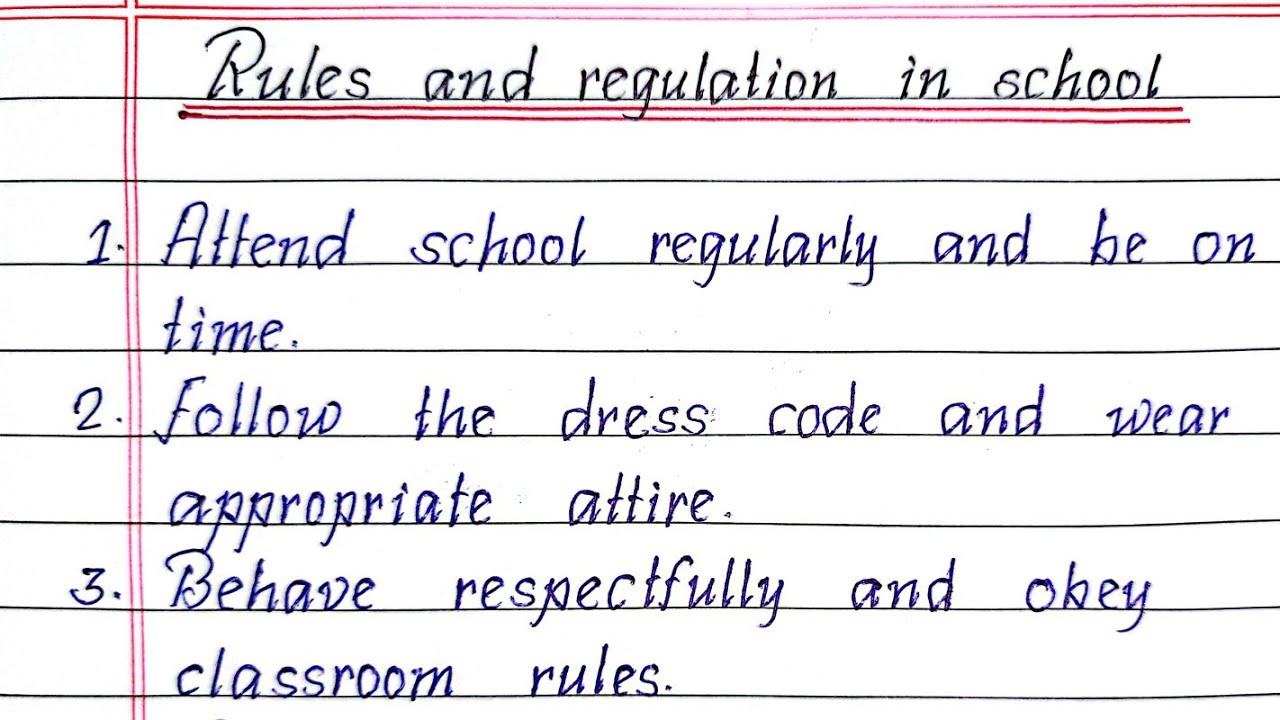 Rules and regulation in school
1. Attend school regularly and be on
time.
2. Follow the dress code and wear
appropriate attire.
3. Behave respectfully and obey
classroom rules.